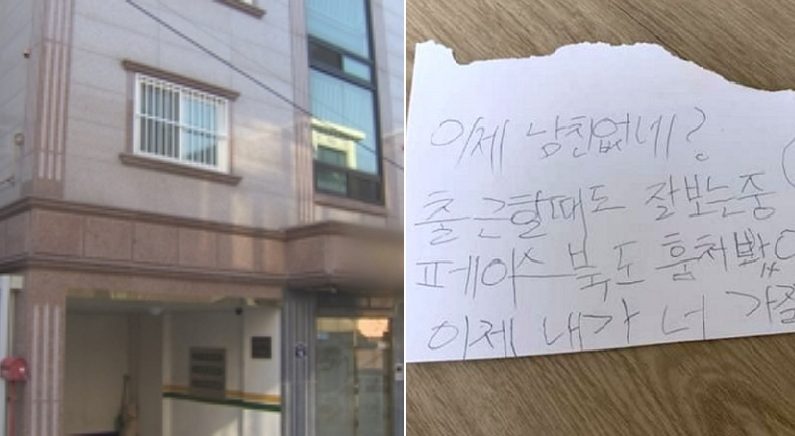 이제 남친없네?
출근할때도 잘보는중
페이스북도 훔쳐봤
이제 내가 너